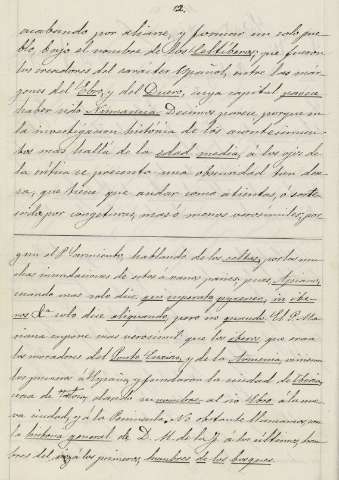 12.
acabando por aliarse, y formar un solo pue-
blo, bajo el nombre de Celtíberos; que fueron
los creadores del carácter Español, entre las már-
genes del Ebro, y del Duero, cuya capital parece
haber sido Numancia. Decimos parece, porque en
la investigacion histórica de los acontecimien-
tos mas hallá de la edad media, á los ojos de
la crítica se presenta una obscuridad tan den-
sa, que tiene que andar como atientas, ó soste-
nida por congeturas, mas ó menos verosimiles, por
y en el P. Sarmiento, hablando de los celtas, por las mu-
chas inundaciones de estos á varios paises, pues, Apiano,
cuando mas solo dice, qui superato pyreneo, in ibe-
ros &a solo dice aliquando, pero no quando. El P. Ma-
riana supone mas verosimil que los iberos que eran
los moradores del Ponto Euxino, y de la Armenia, vinieron
los primeros á España, y fundaron la ciudad de Iberia,
cerca de Tortosa, dando su nombre al rio Ebro, á la nue-
va ciudad, y á la Peninsula. No obstante llamarse, en
la historia general de D. M. de la F. á los últimos, hom-
bres del rio, á los primeros, hombres de los bosques.